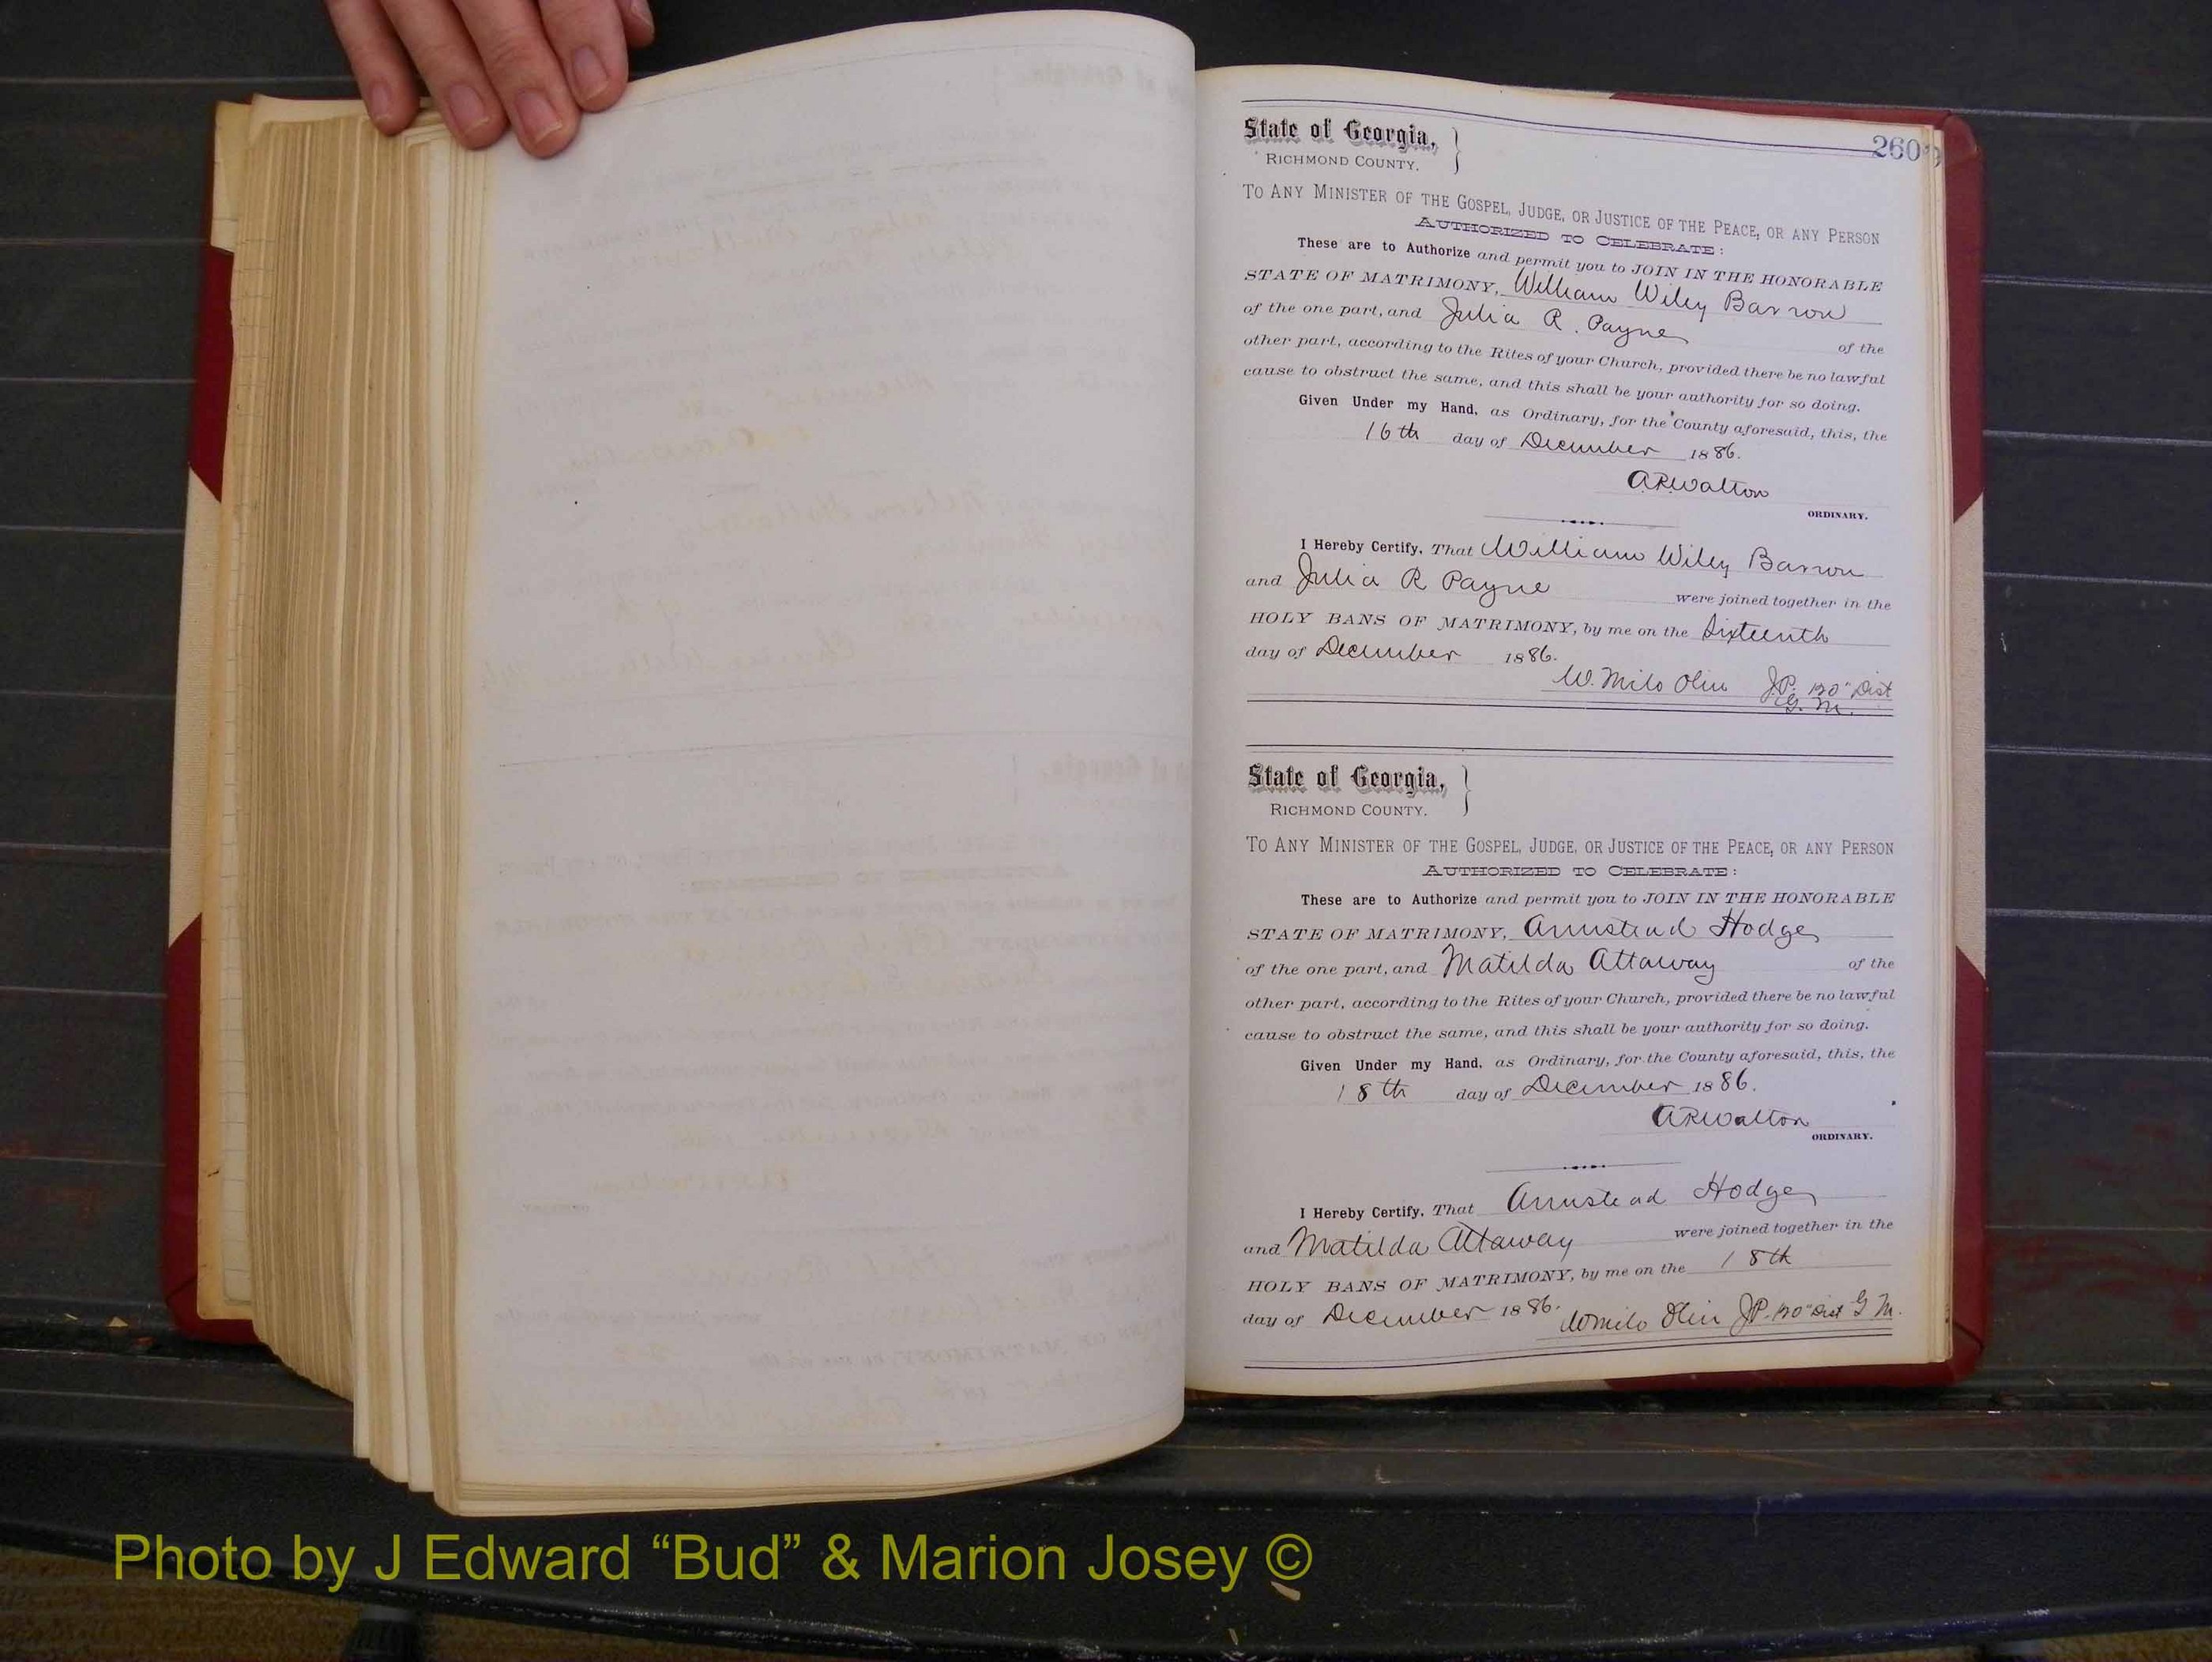 260
State of Georgia,
RICHMOND COUNTY.
TO ANY MINISTER OF THE GOSPEL, JUDGE, OR JUSTICE OF THE PEACE, OR ANY PERSON
AUTHORIZED TO CELEBRATE:
These are to Authorize and permit you to JOIN IN THE HONORABLE
STATE OF MATRIMONY, William Wiley Barron
of the one part, and Julia R. Payne of the
other part, according to the Rites of your Church, provided there be no lawful
cause to obstruct the same, and this shall be your authority for so doing.
Given Under my Hand, as Ordinary, for the County aforesaid, this, the
16th day of December 1886.
A.R.Walton
ORDINARY.
I Hereby Certify, That William Wiley Barron
and Julia R Payne were joined together in the
HOLY BANS OF MATRIMONY, by me on the Sixteenth
day of December 1886.
W. Milo Olin J.P. 120" Dist
G. M.
State of Georgia,
RICHMOND COUNTY.
TO ANY MINISTER OF THE GOSPEL, JUDGE, OR JUSTICE OF THE PEACE, OR ANY PERSON
AUTHORIZED TO CELEBRATE:
These are to Authorize and permit you to JOIN IN THE HONORABLE
STATE OF MATRIMONY, Armstead Hodges
of the one part, and Matilda Attaway of the
other part, according to the Rites of your Church, provided there be no lawful
cause to obstruct the same, and this shall be your authority for so doing.
Given Under my Hand, as Ordinary, for the County aforesaid, this, the
18th day of December 1886.
A R Walton
ORDINARY.
I Hereby Certify, That Armstead Hodges
and Matilda Attaway were joined together in the
HOLY BANS OF MATRIMONY, by me on the 18th
day of December 1886. W Milo Olin JP. 120" Dist G M.
Photo by J Edward “Bud” & Marion Josey ©